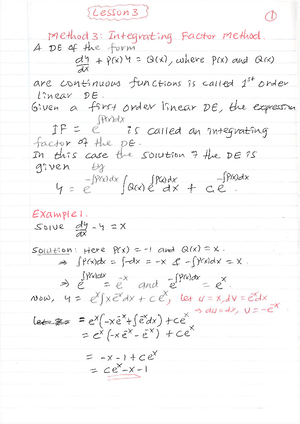 Lesson 3
1
Method 3: Integrating Factor Method.
A DE of the form
dy/dx + P(x)y = Q(x), where P(x) and Q(x)
are continuous functions is called 1st order
linear DE.
Given a first order linear DE, the expression
IF = e^∫P(x)dx is called an integrating
factor of the DE.
In this case the solution of the DE is
given by
y = e^-∫P(x)dx ∫Q(x)e^∫P(x)dx dx + ce^-∫P(x)dx
Example 1.
Solve dy/dx - y = x
Solution: Here P(x) = -1 and Q(x) = x.
⇒ ∫P(x)dx = ∫-dx = -x & -∫P(x)dx = x.
⇒ e^∫P(x)dx = e^-x and e^-∫P(x)dx = e^x.
Now, y = e^x∫xe^-x dx + ce^x, let u = x, dv = e^-x dx
⇒ du = dx, v = -e^-x
= e^x(-xe^-x + ∫e^-x dx) + ce^x
= e^x(-xe^-x - e^-x) + ce^x
= -x - 1 + ce^x
= ce^x - x - 1